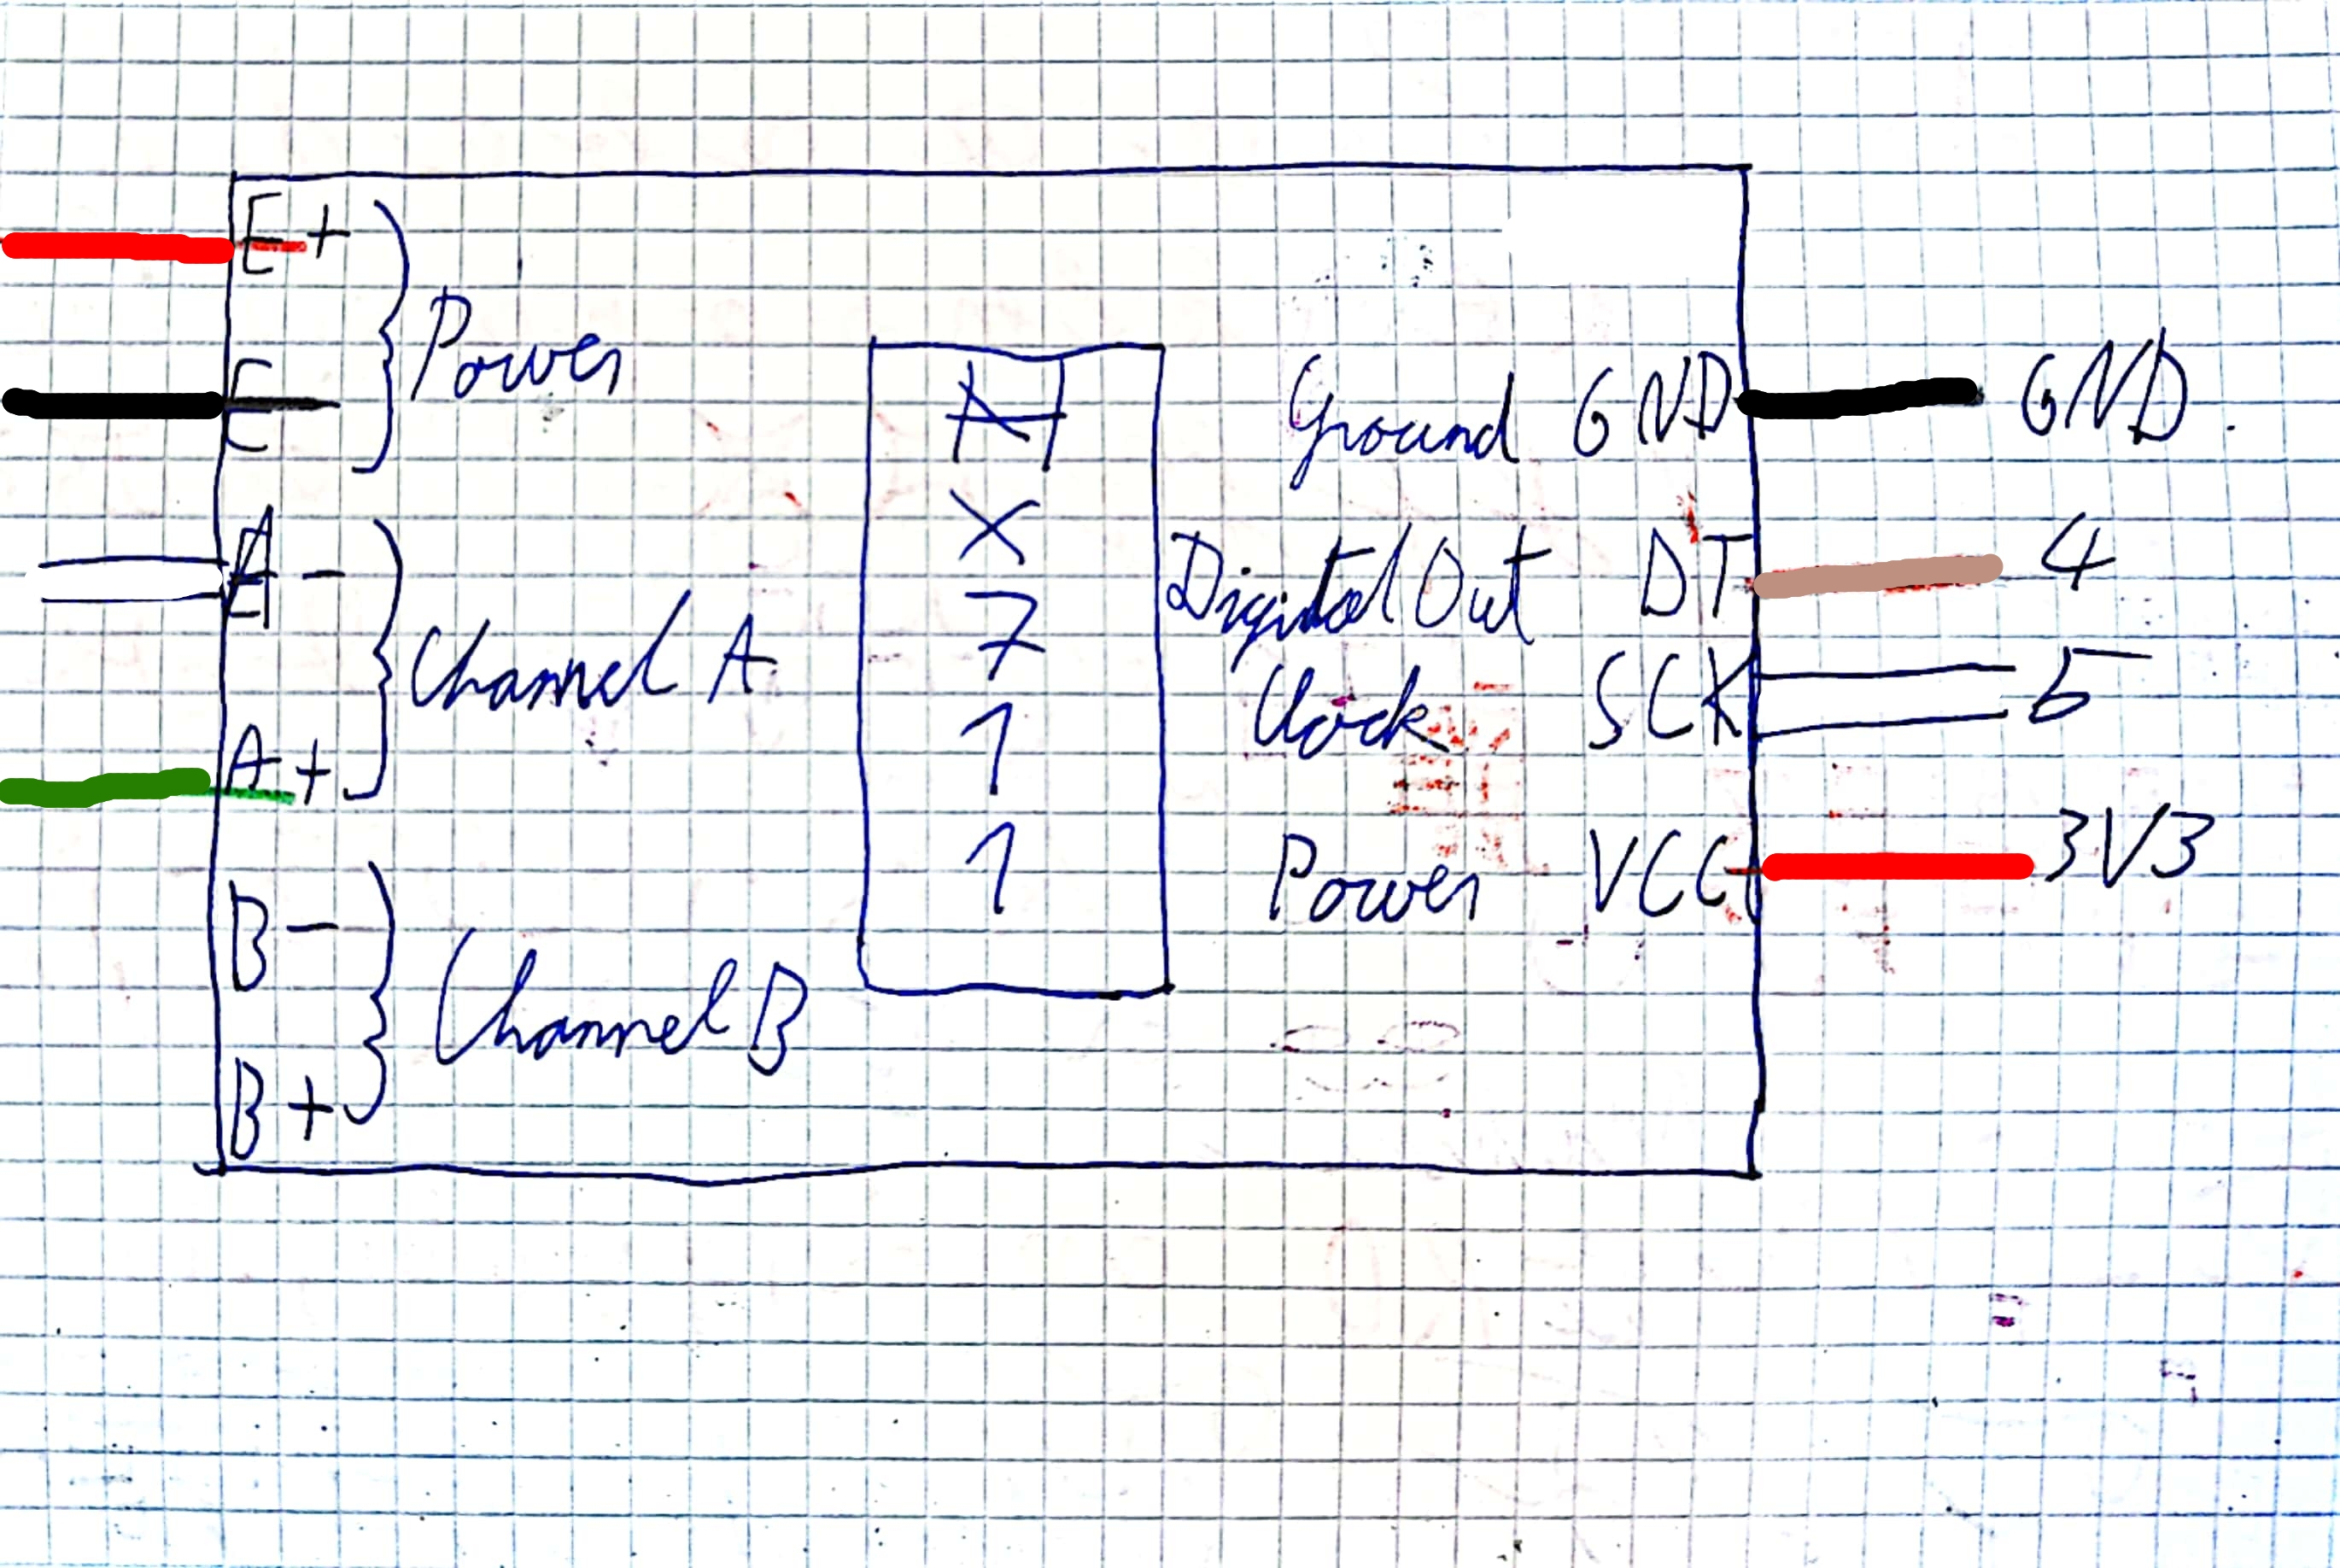 E+
E-
Power
A-
A+
Channel A
B-
B+
Channel B
H
X
7
1
1
Ground GND GND.
Digital Out DT 4
Clock SCK 5
Power VCC 3V3